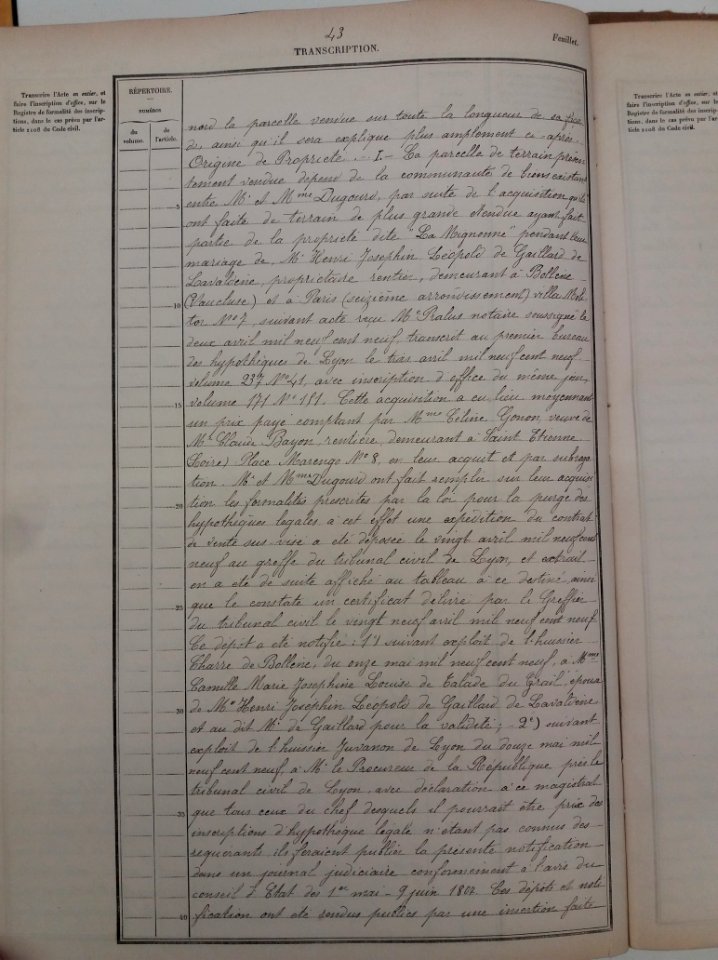 43
TRANSCRIPTION.
Feuillet.
Transcrire l'Acte en entier, et
faire l'inscription d'office, sur le
Registre de formalité des inscrip-
tions, dans le cas prévu par l'ar-
ticle 2108 du Code civil.
RÉPERTOIRE.
NUMÉROS
du volume.
de l'article.
nord la parcelle vendue sur toute la longueur de sa faça
de, ainsi qu'il sera expliqué plus amplement ci-après.
Origine de Propriété. - I - La parcelle de terrain présen
tement vendue dépend de la communauté de biens existant
5
entre Mr et Mme Dugourd, par suite de l'acquisition qu'ils
ont faite de terrain de plus grande étendue ayant fait
partie de la propriété dite "La Mignonne" pendant leur
mariage de Mr Henri Josephin Léopold de Gaillard de
Lavaldène, propriétaire rentier, demeurant à Bollène
10
(Vaucluse) et à Paris (seizième arrondissement) villa Mont
tor No 7, suivant acte reçu Me Pralus notaire soussigné le
deux avril mil neuf cent neuf, transcrit au premier bureau
des hypothèques de Lyon le avril mil neuf cent neuf
volume 237 No 41, avec inscription d'office du même jour,
15
volume 171 No 181. Cette acquisition a eu lieu moyennant
un prix payé comptant par Mme Céline Gonon, veuve de
Mr Claude Bayon, rentière, demeurant à Saint Etienne
(Loire) Place Marengo No 8, en leur acquit et par subroga
tion. Mr et Mme Dugourd ont fait remplir sur leur acquisi
20
tion les formalités prescrites par la loi pour la purge des
hypothèques légales à cet effet une expédition du contrat
de vente sus visé a été déposée le vingt avril mil neuf cent
neuf au greffe du tribunal civil de Lyon, et extrait
en a été de suite affiché au tableau à ce destiné ainsi
25
que le constate un certificat délivré par le Greffier
du tribunal civil le vingt neuf avril mil neuf cent neuf
Ce dépôt a été notifié: 1o) suivant exploit de l'huissier
Charre de Bollène, du onze mai mil neuf cent neuf, à Mme
Camille Marie Joséphine Louise de du Grail, épouse
30
de Mr Henri Josephin Léopold de Gaillard de Lavaldène
et au dit Mr de Gaillard pour la validité; - 2o) suivant
exploit de l'huissier Juvanon de Lyon du douze mai mil
neuf cent neuf, à Mr le Procureur de la République près le
tribunal civil de Lyon, avec déclaration à ce magistrat
35
que tous ceux du chef desquels il pourrait être pris des
inscriptions d'hypothèque légale n'étant pas connus des
requérants, ils feraient publier la présente notification
dans un journal judiciaire conformément à l'avis du
conseil d'Etat des 1er mai - 9 juin 1807. Ces dépôt et noti
40
fication ont été rendus publics par une insertion faite
Transcrire l'Acte en entier, et
faire l'inscription d'office, sur le
Registre de formalité des inscrip-
tions, dans le cas prévu par l'ar-
ticle 2108 du Code civil.